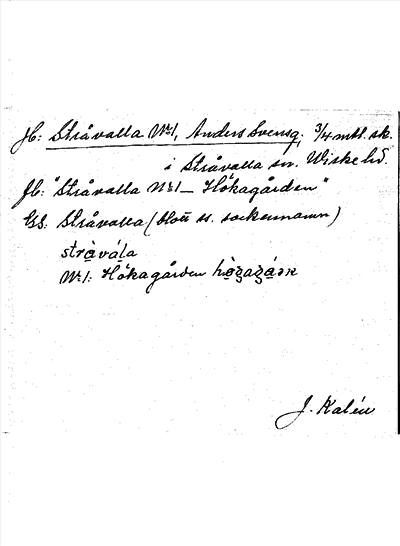 Jb: Stråvalla No 1, Anders Svensg. 3/4 mtl. sk.
i Stråvalla sn. Wiske hd.
Jb: "Stråvalla No 1 – Hökagården"
Us: Stråvalla (blott ss. sockennamn)
stràvála
No 1: Hökagården
J. Kalén